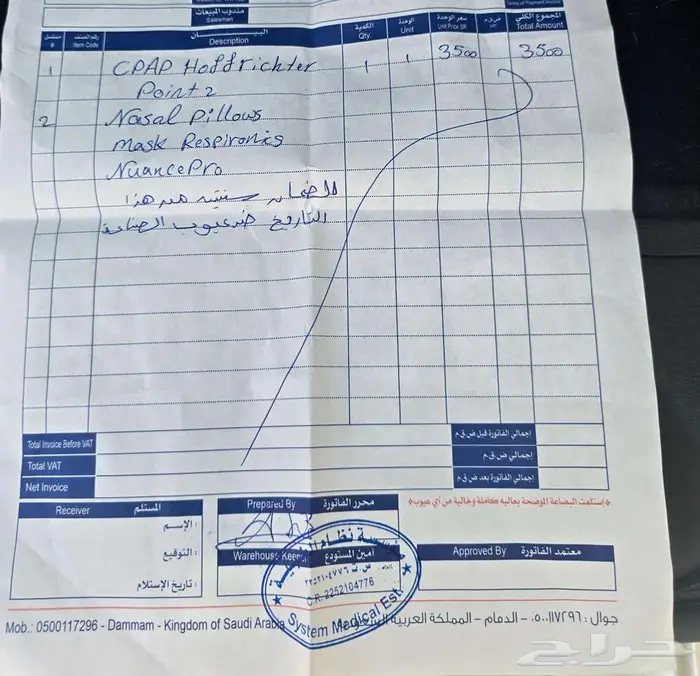 Terms of Payment
مندوب المبيعات
Salesman
مسلسل
#
رقم الصنف
Item Code
البيــــــــان
Description
الكمية
Qty.
الوحدة
Unit
سعر الوحدة
Unit Price SR
ض.ق.م
المجموع الكلي
Total Amount
1 CPAP Hoffrichter 1 1 3500 3500
Point 2
2 Nasal Pillows
Mask Respironics
NuancePro
الضمان سنتين من هذا
التاريخ ضد عيوب الصناعة
Total Invoice Before VAT
إجمالي الفاتورة قبل ض.ق.م
Total VAT
إجمالي ض.ق.م
Net Invoice
إجمالي الفاتورة بعد ض.ق.م
Receiver المستلم
الإسم :
التوقيع :
تاريخ الإستلام :
Prepared By محرر الفاتورة
Warehouse Keeper أمين المستودع
*إستلمت البضاعة الموضحة بعاليه كاملة وخالية من أي عيوب*
Approved By معتمد الفاتورة
C.R. 2252104776
System Medical Est.
Mob.: 0500117296 - Dammam - Kingdom of Saudi Arabia
جوال : ٠٥٠٠١١٧٢٩٦ - الدمام - المملكة العربية السعودية
حراج